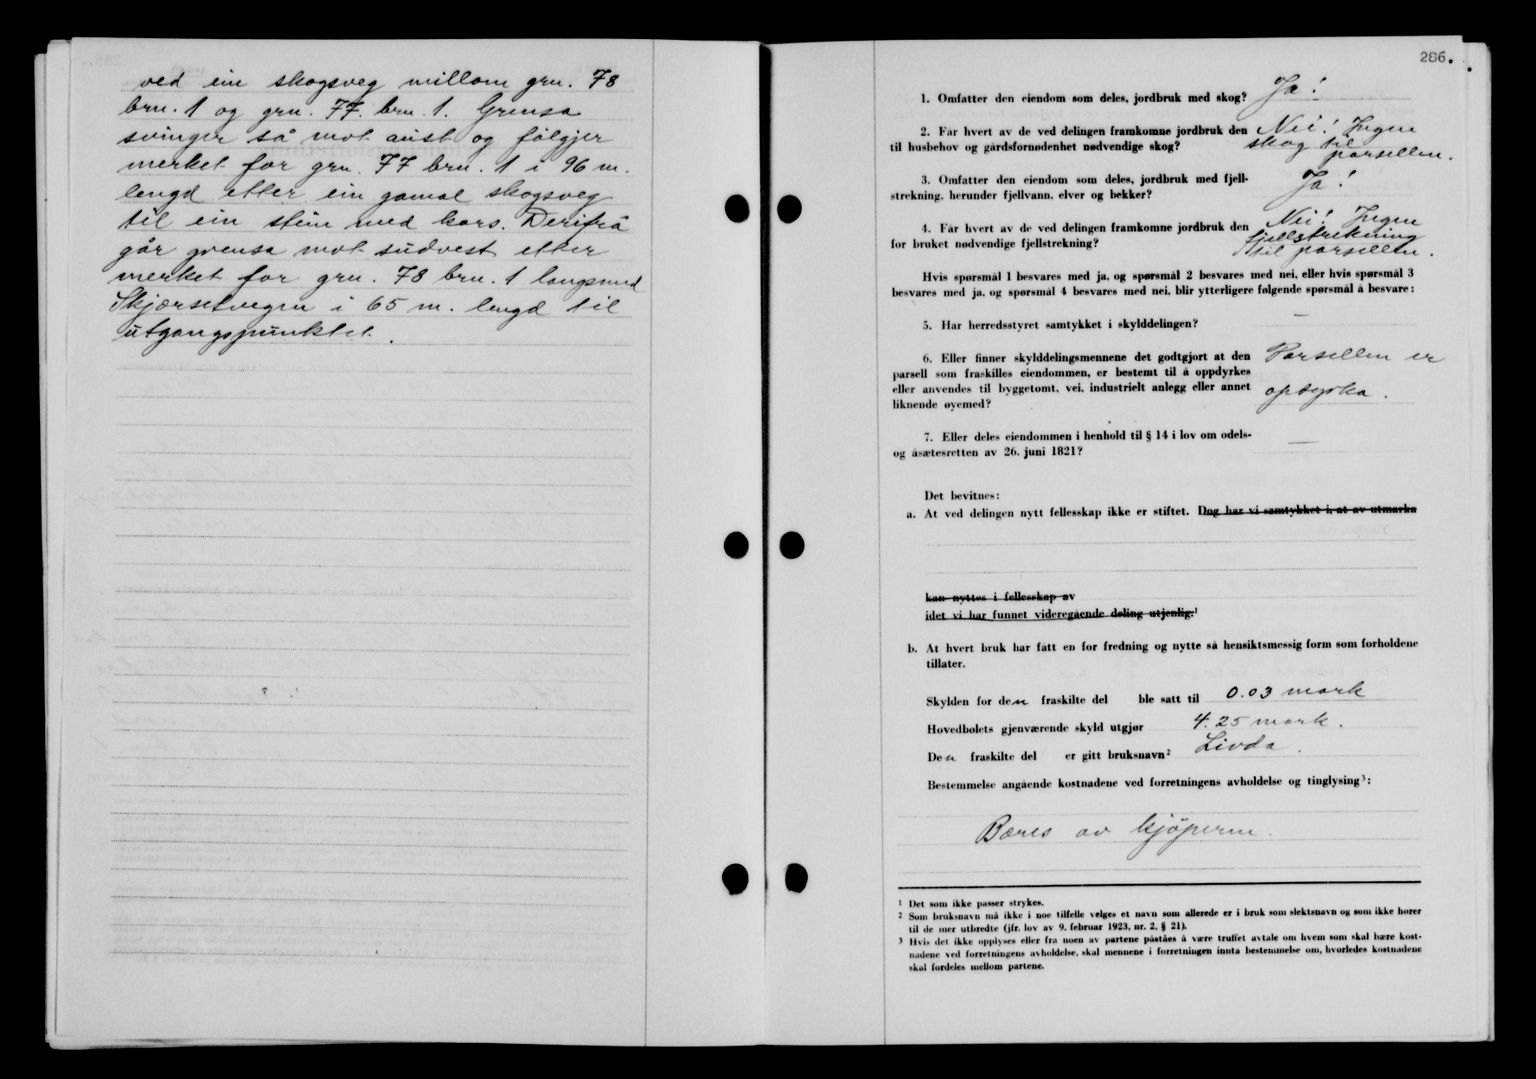 ved ein skogsveg millom grn. 78
brn. 1 og grn. 77. brn. 1. Grensa
svinger så mot aust og fölgjer
merket for grn. 77 brn. 1 i 96 m.
lengd etter ein gamal skogsveg
til ein stein med kors. Derifrå
går grensa mot sudvest etter
merket for grn. 78 brn. 1 langsmed
Skjærsetvegen i 65 m. lengd til
utgangspunktet.
286.
1. Omfatter den eiendom som deles, jordbruk med skog? Ja!
2. Får hvert av de ved delingen framkomne jordbruk den Nei! Ingen
til husbehov og gårdsfornødenhet nødvendige skog? skog til
parsellen.
3. Omfatter den eiendom som deles, jordbruk med fjell- Ja!
strekning, herunder fjellvann, elver og bekker?
4. Får hvert av de ved delingen framkomne jordbruk den Nei! Ingen
for bruket nødvendige fjellstrekning? fjellstrekning
til parsellen.
Hvis spørsmål 1 besvares med ja, og spørsmål 2 besvares med nei, eller hvis spørsmål 3
besvares med ja, og spørsmål 4 besvares med nei, blir ytterligere følgende spørsmål å besvare:
5. Har herredsstyret samtykket i skylddelingen? —
6. Eller finner skylddelingsmennene det godtgjort at den Parsellen er
parsell som fraskilles eiendommen, er bestemt til å oppdyrkes
eller anvendes til byggetomt, vei, industrielt anlegg eller annet opdyrka.
liknende øyemed?
7. Eller deles eiendommen i henhold til § 14 i lov om odels- —
og åsætesretten av 26. juni 1821?
Det bevitnes:
a. At ved delingen nytt fellesskap ikke er stiftet. Dog har vi samtykket i, at av utmarka
kan nyttes i fellesskap av
idet vi har funnet videregående deling utjenlig.¹
b. At hvert bruk har fått en for fredning og nytte så hensiktsmessig form som forholdene
tillater.
Skylden for den fraskilte del ble satt til 0.03 mark
Hovedbølets gjenværende skyld utgjør 4.25 mark.
Den fraskilte del er gitt bruksnavn² Livda.
Bestemmelse angående kostnadene ved forretningens avholdelse og tinglysing³:
Bæres av kjöperen.
¹ Det som ikke passer strykes.
² Som bruksnavn må ikke i noe tilfelle velges et navn som allerede er i bruk som slektsnavn og som ikke hører
til de mer utbredte (jfr. lov av 9. februar 1923, nr. 2, § 21).
³ Hvis det ikke opplyses eller fra noen av partene påståes å være truffet avtale om hvem som skal bære kost-
nadene ved forretningens avholdelse, skal mennene i forretningen innta bestemmelse om, hvorledes kostnadene
skal fordeles mellom partene.